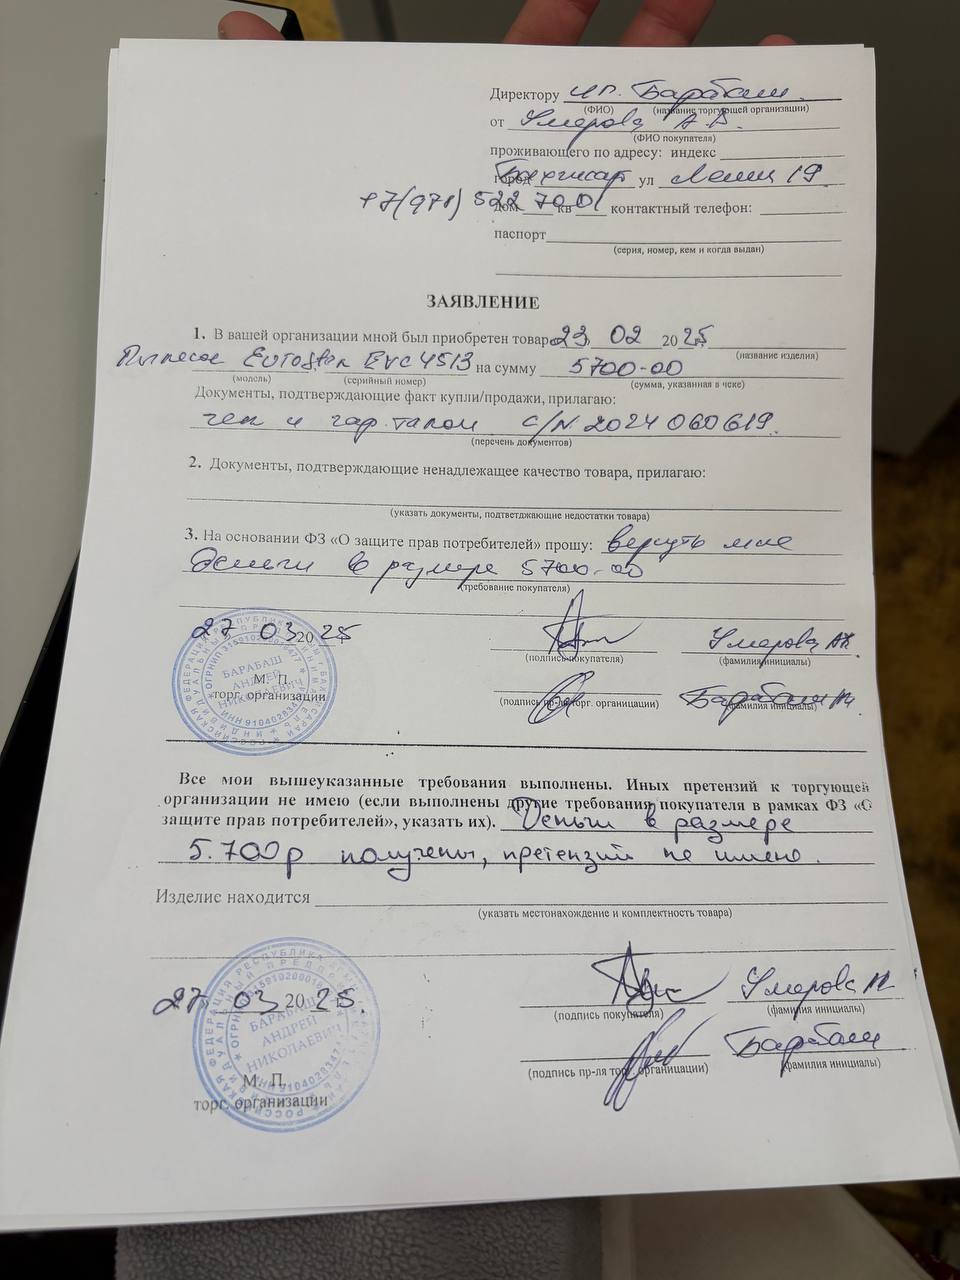 Директору ип. Барабаш.
(ФИО) (название торгующей организации)
от Умерова А.В.
(ФИО покупателя)
проживающего по адресу: индекс
город Бахчисар ул Ленин 19
+7(978) 522 700
дом кв контактный телефон:
паспорт
(серия, номер, кем и когда выдан)
ЗАЯВЛЕНИЕ
1. В вашей организации мной был приобретен товар 23 02 2025
(название изделия)
Пылесос Eurostek EVC 4513 на сумму 5700-00
(модель) (серийный номер) (сумма, указанная в чеке)
Документы, подтверждающие факт купли/продажи, прилагаю:
чек и гар. талон С/N 2024060619.
(перечень документов)
2. Документы, подтверждающие ненадлежащее качество товара, прилагаю:
(указать документы, подтветджающие недостатки товара)
3. На основании ФЗ «О защите прав потребителей» прошу: вернуть мне
деньги в размере 5700-00
(требование покупателя)
27 03 2025
Умерова
(подпись покупателя) (фамилия инициалы)
БАРАБАШ АНДРЕЙ НИКОЛАЕВИЧ
М. П.
торг. организации
Барабаш
(подпись пр-ля торг. органицации) (фамилия инициалы)
Все мои вышеуказанные требования выполнены. Иных претензий к торгующей
организации не имею (если выполнены другие требования покупателя в рамках ФЗ «О
защите прав потребителей», указать их). Деньги в размере
5.700р получены, претензий не имею.
Изделие находится
(указать местонахождение и комплектность товара)
27 03 2025.
Умерова
(подпись покупателя) (фамилия инициалы)
БАРАБАШ АНДРЕЙ НИКОЛАЕВИЧ
Барабаш
(подпись пр-ля торг. органицации) (фамилия инициалы)
М. П.
торг. организации